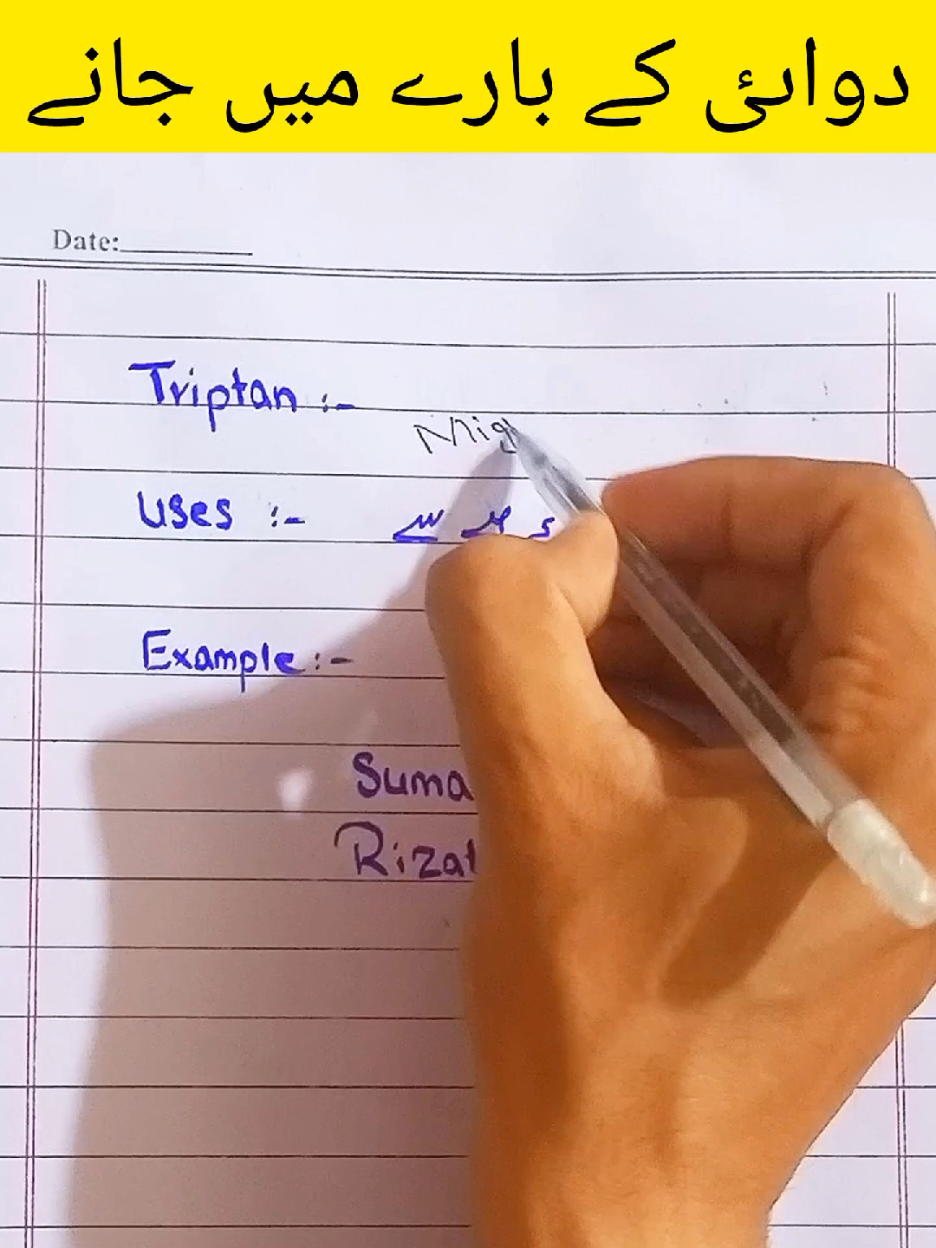 دوائی کے بارے میں جانے
Date:
Triptan :-
Mig
Uses :-
Example :-
Suma
Rizat